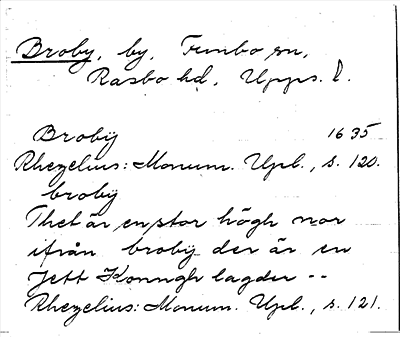 Broby, by, Funbo sn,
Rasbo hd, Upps. l.
Brobÿ 1635
Rhezelius: Monum. Upl., s. 120.
brobÿ
Thet är en stor högh nor
ifrån brobÿ der är en
Jett Konungh lagder --
Rhezelius: Monum. Upl., s. 121.